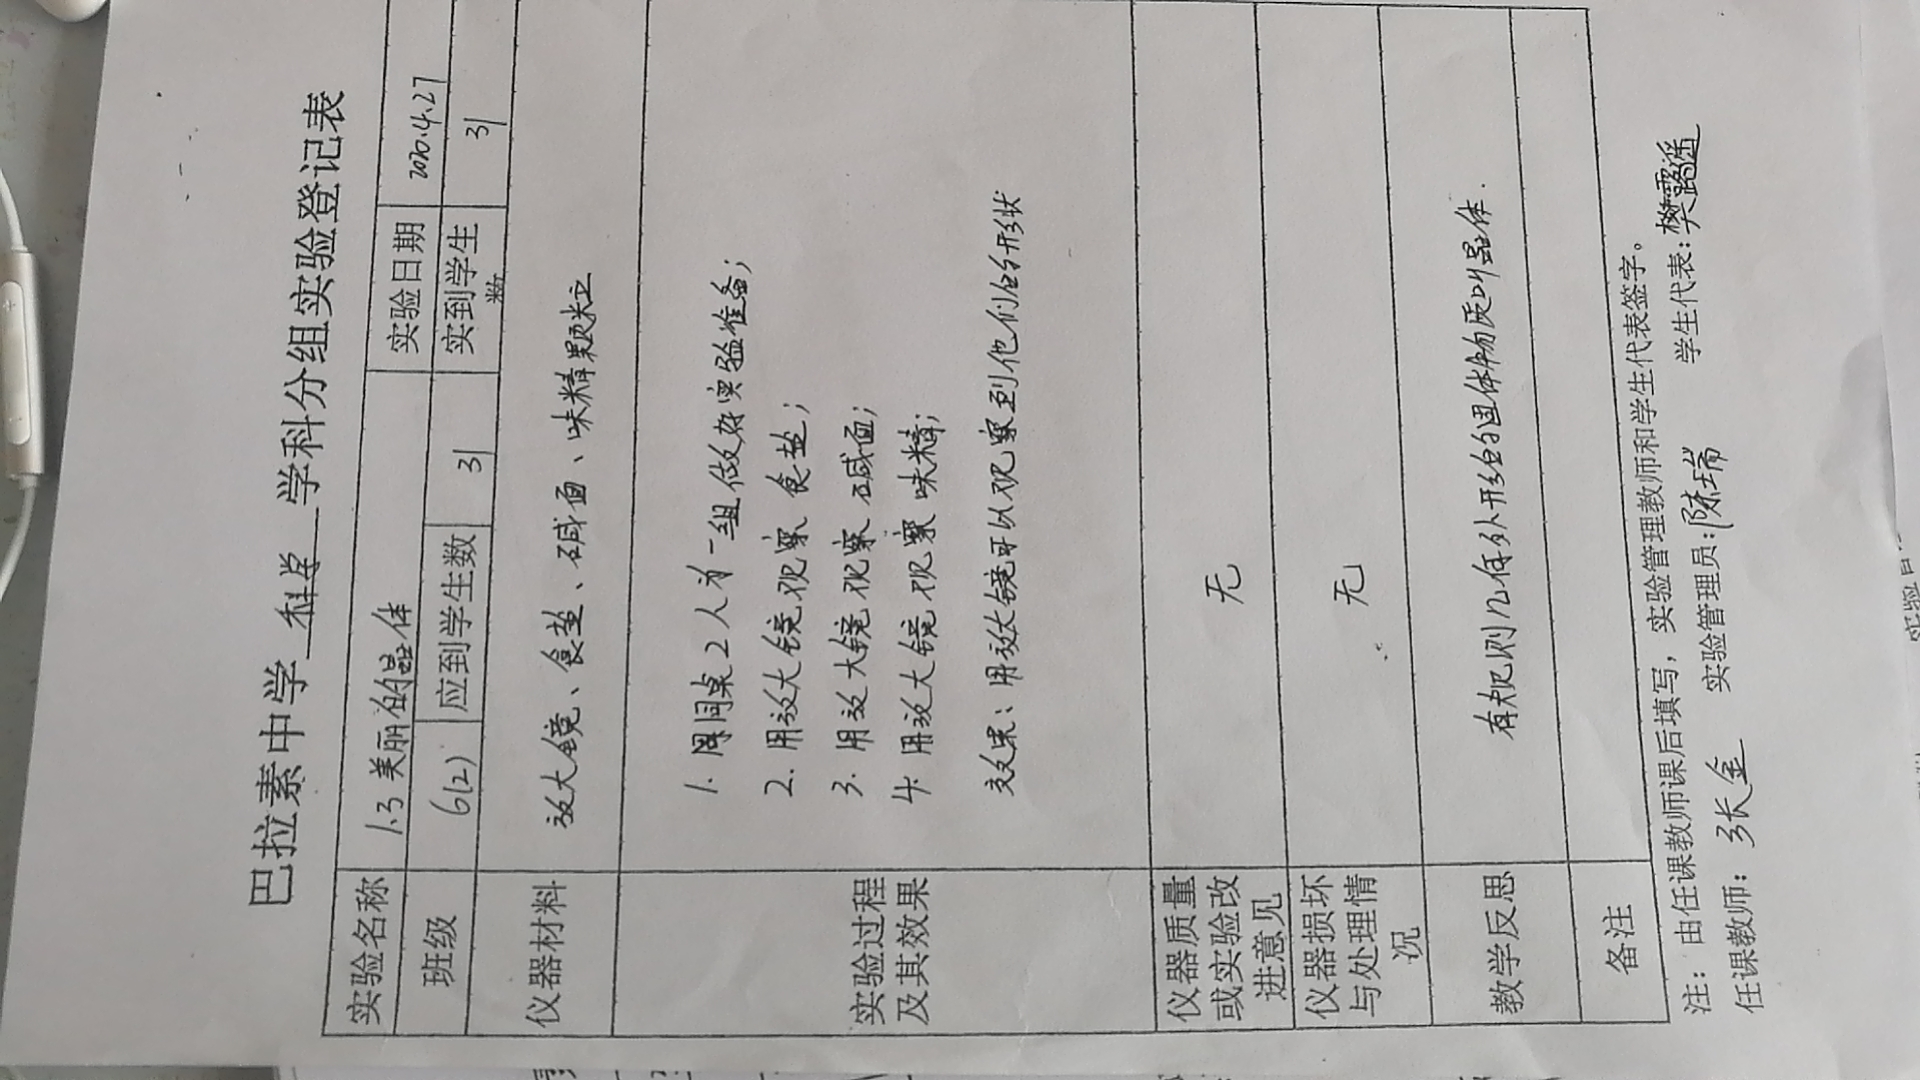 巴拉素中学 科学 学科分组实验登记表
实验名称 1.3 美丽的晶体 实验日期 2020.4.27
班级 6(2) 应到学生数 31 实到学生数 31
仪器材料 放大镜、食盐、碱面、味精颗粒
实验过程及其效果
1. 同桌2人为一组做好实验准备;
2. 用放大镜观察食盐;
3. 用放大镜观察碱面;
4. 用放大镜观察味精;
效果:用放大镜可以观察到他们的形状
仪器质量或实验改进意见 无
仪器损坏与处理情况 无
教学反思 有规则几何外形的固体物质叫晶体.
备注
注:由任课教师课后填写,实验管理教师和学生代表签字。
任课教师: 张金 实验管理员:陈瑞 学生代表:樊露遥